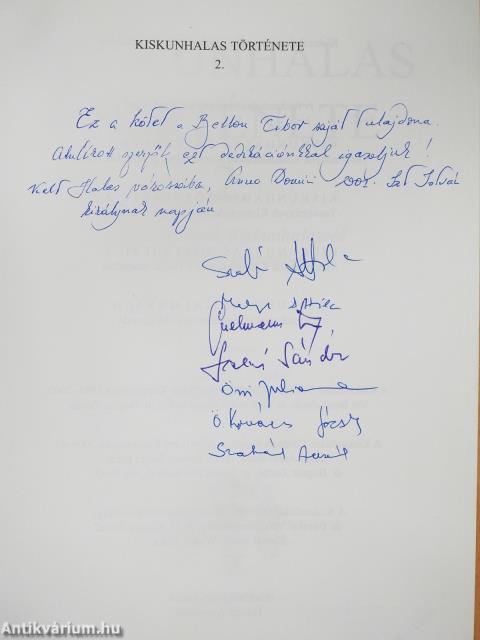 KISKUNHALAS TÖRTÉNETE
2.
Ez a kötet a Bellon Tibor saját tulajdona.
Alulírott szerzők ezt dedikációnkkal igazoljuk!
Kelt Halas városába, Anno Domini 2001. Szt István
királynak napján
Szabó Attila
Attila
Szűcs Sándor
Ö Kovács József
Szakál Aurél
Antikvárium.hu